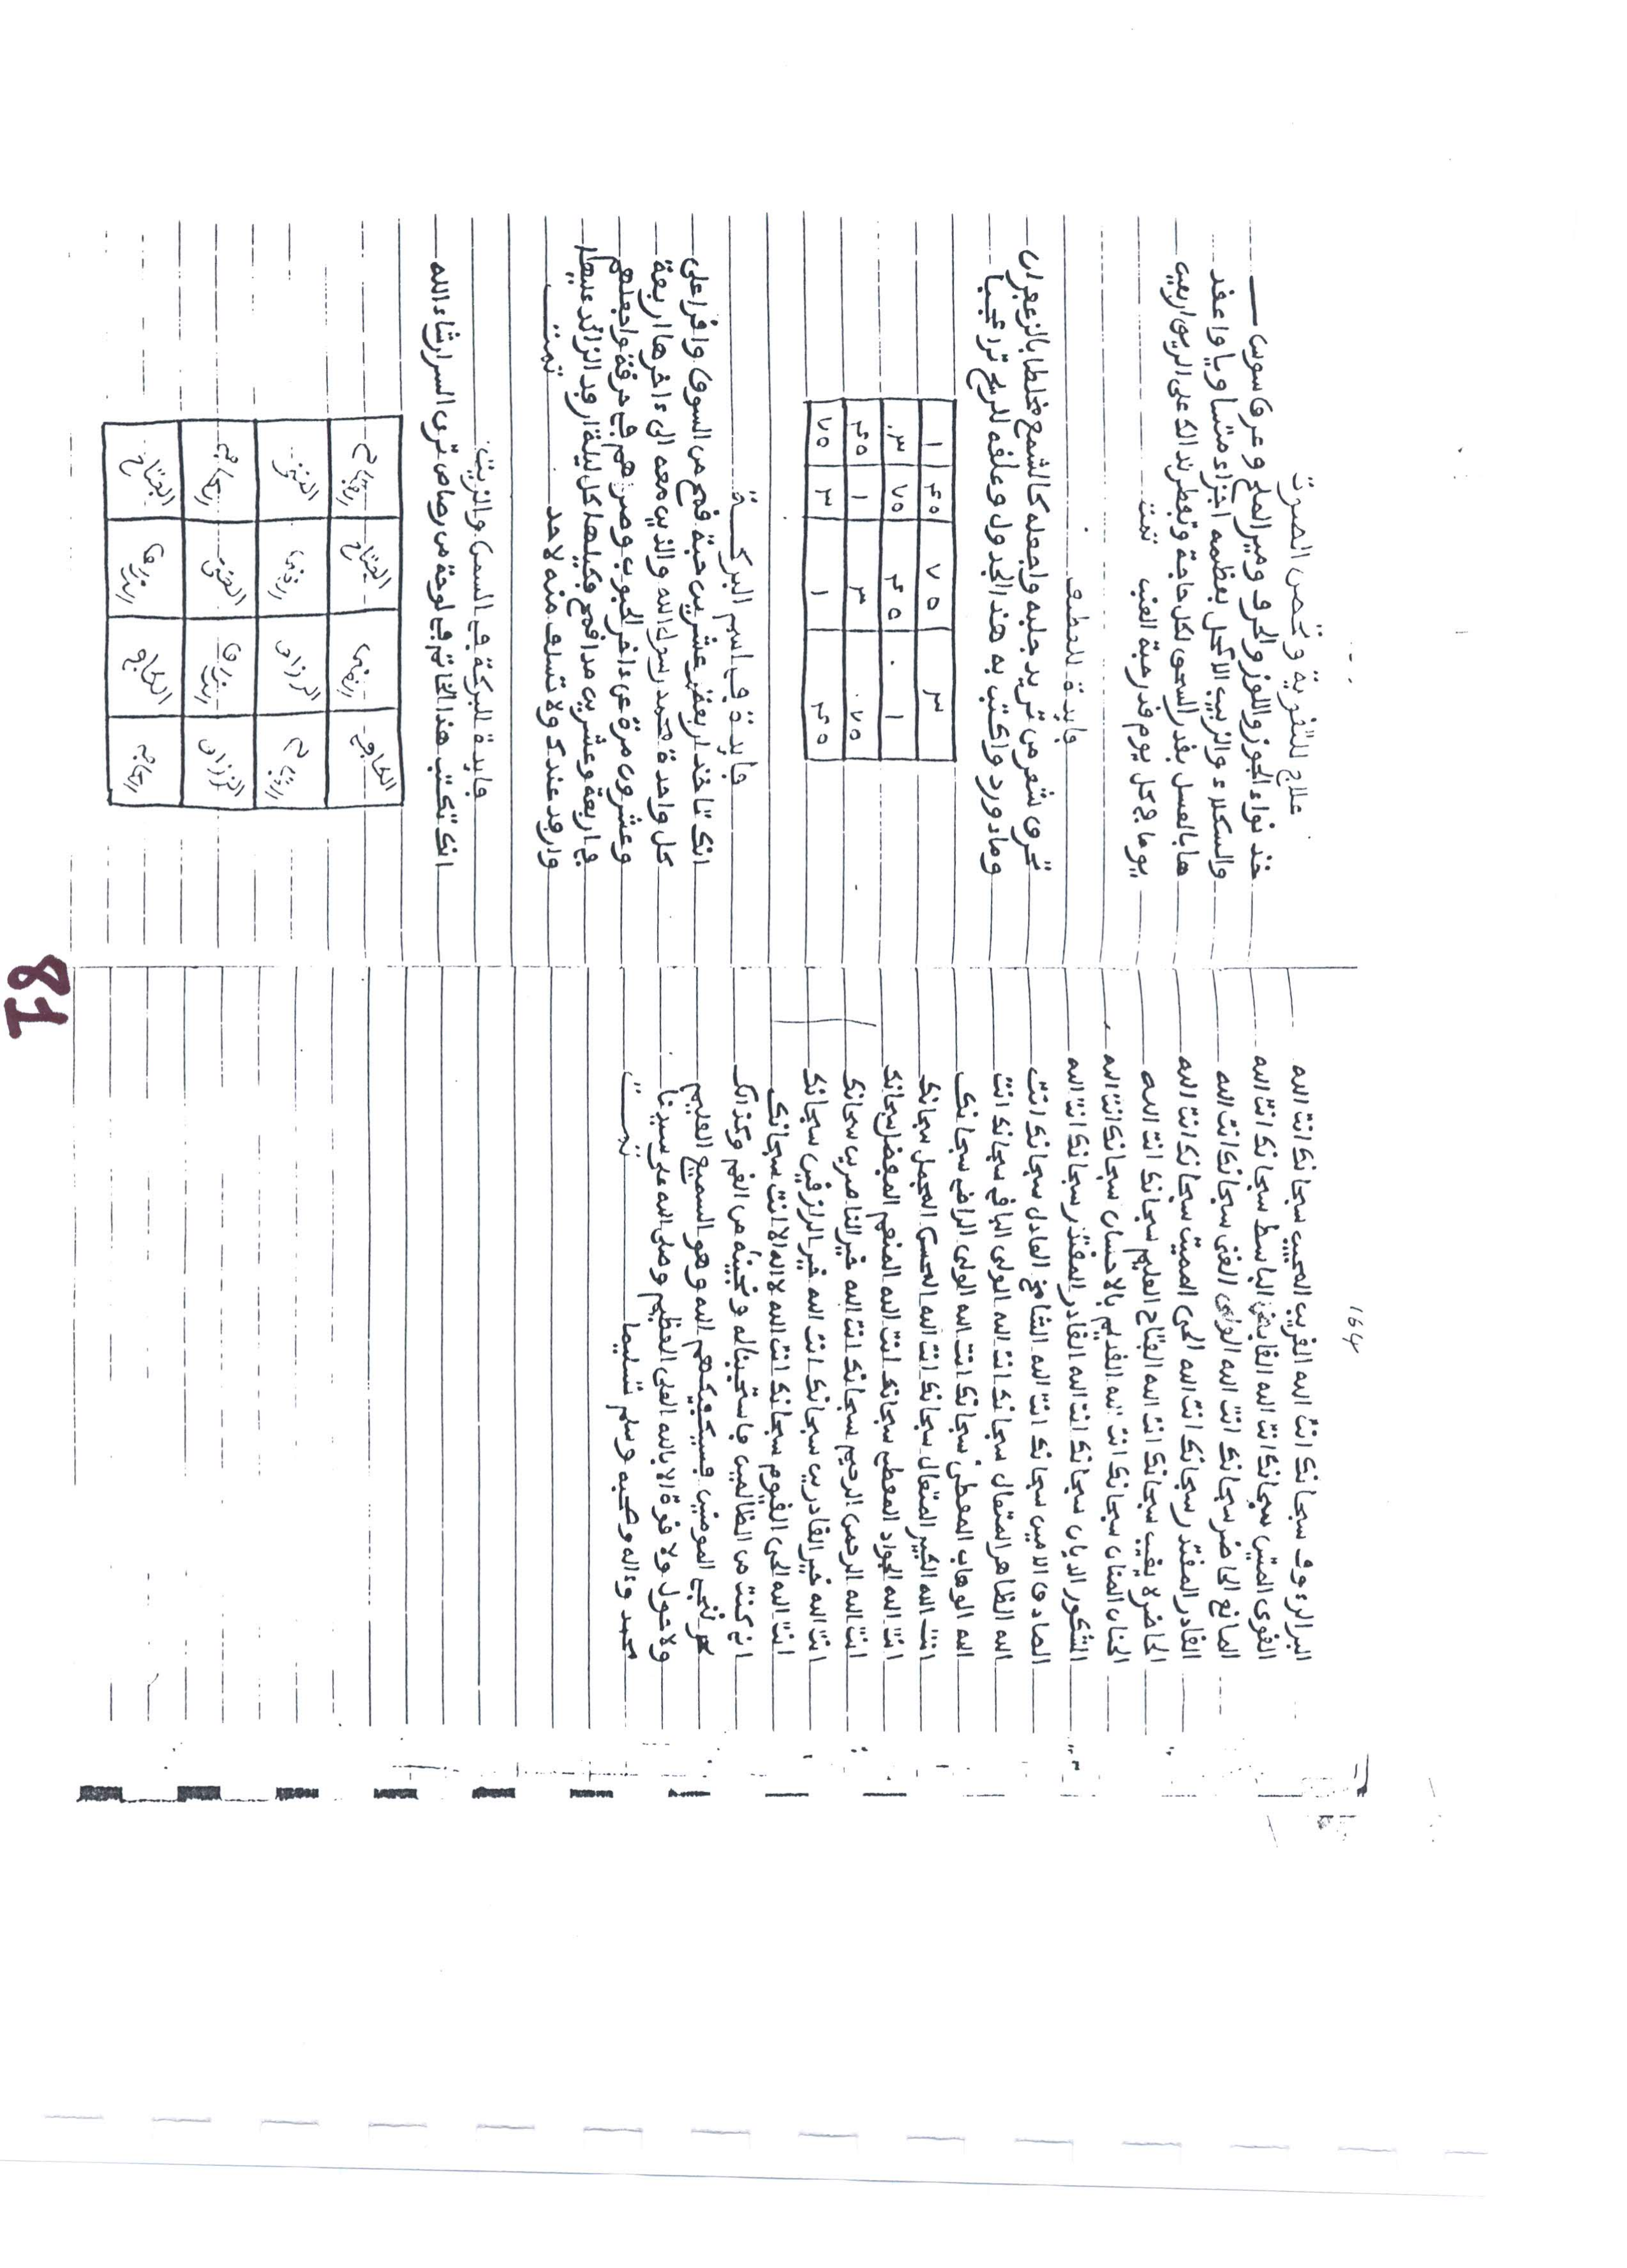 164
البر الرءوف سبحانك انت الله القريب المجيب سبحانك انت الله
القوي المتين سبحانك انت الله القابض الباسط سبحانك انت الله
المانع الحاضر سبحانك انت الله الولي الغني سبحانك انت الله
القادر المقتدر سبحانك انت الله الحي المميت سبحانك انت الله
الحاضر لا يغيب سبحانك انت الله الفتاح العليم سبحانك انت الله
الحنان المنان سبحانك انت الله القديم بالاحسان سبحانك انت الله
الشكور الديان سبحانك انت الله القادر المقتدر سبحانك انت الله
الصادق الامين سبحانك انت الله الشامخ العادل سبحانك انت
الله الظاهر المتعال سبحانك انت الله الولي الباقي سبحانك انت
الله الوهاب المعطي سبحانك انت الله الولي الرافع سبحانك
انت الله الكبير المتعال سبحانك انت الله المحسن المجمل سبحانك
انت الله الجواد المعطي سبحانك انت الله المنعم المفضل سبحانك
انت الله الرحمن الرحيم سبحانك انت الله خير الناصرين سبحانك
انت الله خير القادرين سبحانك انت الله خير الرازقين سبحانك
انت الله الحي القيوم سبحانك انت الله لا اله الا انت سبحانك
اني كنت من الظالمين فاستجبنا له ونجيناه من الغم وكذالك
ننجي المومنين فسيكفيكهم الله وهو السميع العليم
ولا حول ولا قوة الا بالله العلي العظيم وصلى الله على سيدنا
محمد وءاله وصحبه وسلم تسليما تمــت
علاج للتقوية وتخص الصوت
خذ نواء الجوز واللوز والحرف ومير الملح وعرق سوس
والسكلاء والزبيب الاكحل بعظمه اجزاء متساويا واعقد
ها بالعسل بقدر السحق لكل حاجة وتفطر بذالك على الريق اربعين
يوما في كل يوم قدر حبة العنب تمت
فايدة للعطف
تحرق شعر من تريد جلبه واجعله كالشمع مخلطا بالزعفران
وماء ورد واكتب به هذا الجدول وعلقه للريح ترا عجبا
٣ ٧٥ ٤٥ ١
١ ٤٥ ٧٥ ٣
٧٥ ٣ ١ ٤٥
٤٥ ١ ٣ ٧٥
فايدة في اسم البركــة
انك تاخذ اربعة وعشرين حبة قمح من السوق واقرا على
كل واحدة محمد رسول الله والذين معه الى ءاخرها اربعة
وعشرون مرة على ءاخر الحبوب وصرهم في خرقة واجعلهم
في اربعة وعشرين مدا قمح وكيلها كل ليلة ارفد الزائد عليها
وارفد عندك ولا تسلف منه لاحد تمــت
فايدة للبركة في السمن والزيت
انك تكتب هذا الخاتم في لوحة من رصاص ترى السر ان شاء الله
الفتاح
الرزاق الغني
الغني
الرزاق الفتاح
81